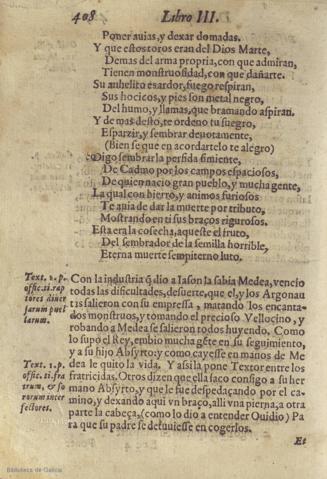 408 Libro III.
Poner auias, y dexar domadas.
Y que estos toros eran del Dios Marte,
Demas del arma propria, con que admiran,
Tienen monstruosidad, con que dañarte.
Su anhelito es ardor, fuego respiran,
Sus hocicos, y pies son metal negro,
Del humo, y llamas, que bramando aspiran.
Y de mas desto, te ordeno tu suegro,
Esparzir, y sembrar deuotamente,
(Bien se que en acordartelo te alegro)
Digo sembrar la perfida simiente,
De Cadmo por los campos espaciosos,
De quien nacio gran pueblo, y mucha gente,
La qual con hierro, y animos furiosos
Te auia de dar la muerte por tributo,
Mostrando en ti sus braços rigurosos.
Esta era la cosecha, aqueste el fruto,
Del sembrador de la semilla horrible,
Eterna muerte sempiterno luto.
Con la industria q̃ dio a Iason la sabia Medea, vencio
todas las dificultades, desuerte, que el, y los Argonau
tas salieron con su empressa, matando los encanta-
dos monstruos, y tomando el precioso Vellocino, y
robando a Medea se salieron todos huyendo. Como
lo supo el Rey, embio mucha gẽte en su seguimiento,
y a su hijo Absyrto: y como cayesse en manos de Me
dea le quito la vida. Y assi la pone Textor entre los
fratricidas. Otros dizen que ella saco consigo a su her
mano Absyrto, y que le fue despedaçando por el ca-
mino, y dexando aqui vn braço, alli vna pierna, a otra
parte la cabeça, (como lo dio a entender Ouidio) Pa
ra que su padre se detuuiesse en cogerlos.
Et
Text. 2. p.
offic. ti. rap
tores diuer
sarum puel
larum.
Text. 1. p.
offic. ti. fra
trum, & so
rorum inter
fectores.
Biblioteca de Galicia